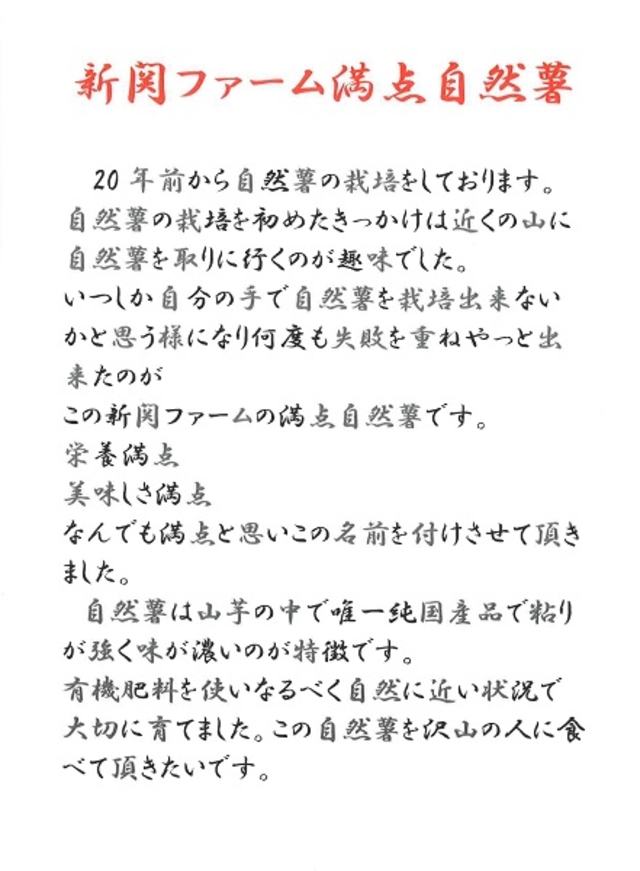 新関ファーム満点自然薯
20年前から自然薯の栽培をしております。
自然薯の栽培を初めたきっかけは近くの山に
自然薯を取りに行くのが趣味でした。
いつしか自分の手で自然薯を栽培出来ない
かと思う様になり何度も失敗を重ねやっと出
来たのが
この新関ファームの満点自然薯です。
栄養満点
美味しさ満点
なんでも満点と思いこの名前を付けさせて頂き
ました。
自然薯は山芋の中で唯一純国産品で粘り
が強く味が濃いのが特徴です。
有機肥料を使いなるべく自然に近い状況で
大切に育てました。この自然薯を沢山の人に食
べて頂きたいです。